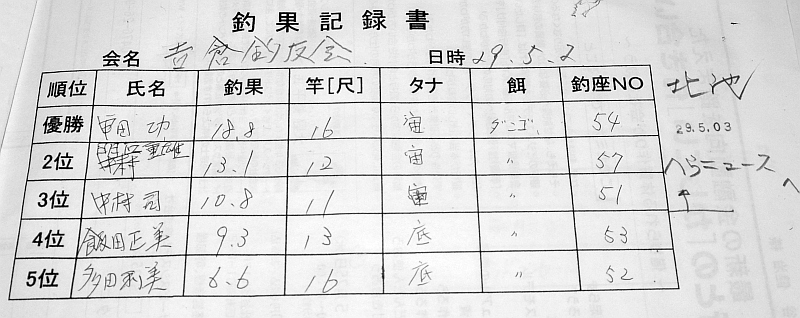 釣果記録書
会名 吉倉釣友会 日時 29.5.2
順位 氏名 釣果 竿[尺] タナ 餌 釣座NO
優勝 功 18.8 16 宙 ダンゴ 54
2位 重雄 13.1 12 宙 〃 57
3位 中村 司 10.8 11 宙 〃 51
4位 飯田正美 9.3 13 底 〃 53
5位 多田利美 6.6 16 底 〃 52
北池
29.5.03
へらニュース
へ